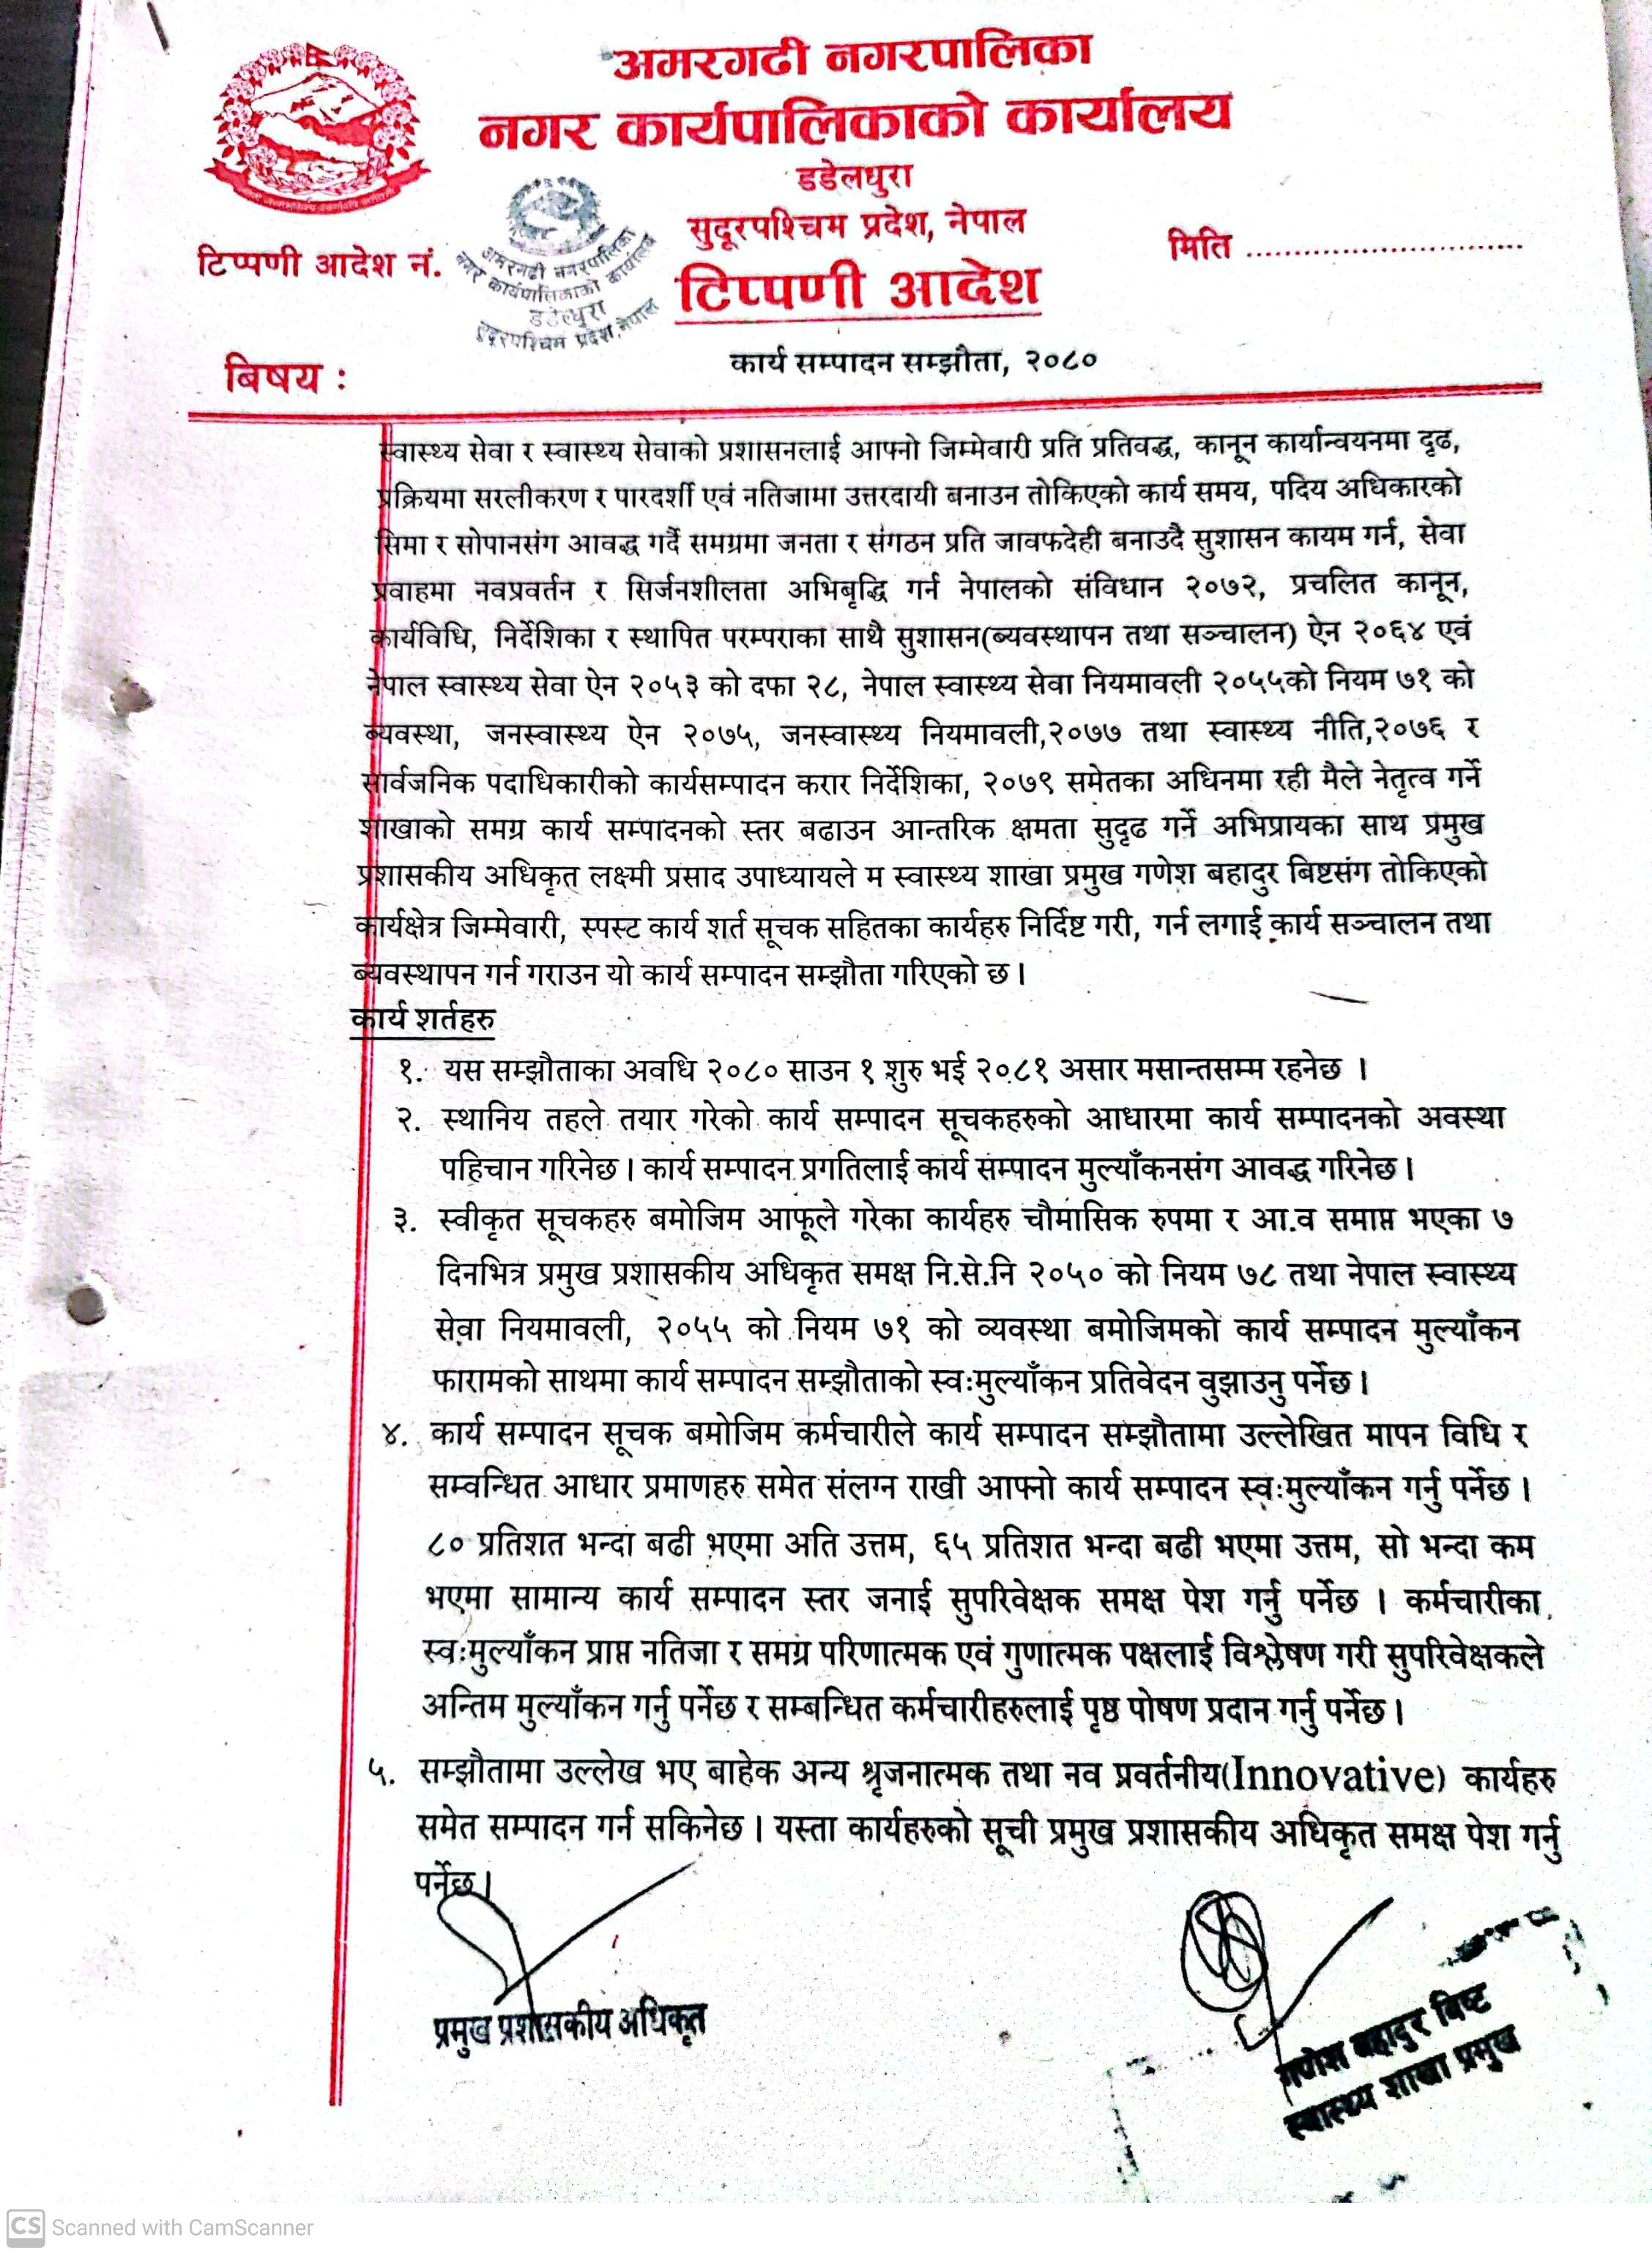 अमरगढी नगरपालिका
नगर कार्यपालिकाको कार्यालय
डडेलधुरा
सुदूरपश्चिम प्रदेश, नेपाल
टिप्पणी आदेश नं.
मिति ..............................
अमरगढी नगरपालिका
नगर कार्यपालिकाको कार्यालय
डडेल्धुरा
सुदूरपश्चिम प्रदेश, नेपाल
टिप्पणी आदेश
बिषय :
कार्य सम्पादन सम्झौता, २०८०
स्वास्थ्य सेवा र स्वास्थ्य सेवाको प्रशासनलाई आफ्नो जिम्मेवारी प्रति प्रतिवद्ध, कानून कार्यान्वयनमा दृढ,
प्रक्रियमा सरलीकरण र पारदर्शी एवं नतिजामा उत्तरदायी बनाउन तोकिएको कार्य समय, पदिय अधिकारको
सिमा र सोपानसंग आवद्ध गर्दै समग्रमा जनता र संगठन प्रति जावफदेही बनाउदै सुशासन कायम गर्न, सेवा
प्रवाहमा नवप्रवर्तन र सिर्जनशीलता अभिबृद्धि गर्न नेपालको संविधान २०७२, प्रचलित कानून,
कार्यविधि, निर्देशिका र स्थापित परम्पराका साथै सुशासन(ब्यवस्थापन तथा सञ्चालन) ऐन २०६४ एवं
नेपाल स्वास्थ्य सेवा ऐन २०५३ को दफा २८, नेपाल स्वास्थ्य सेवा नियमावली २०५५को नियम ७१ को
ब्यवस्था, जनस्वास्थ्य ऐन २०७५, जनस्वास्थ्य नियमावली,२०७७ तथा स्वास्थ्य नीति,२०७६ र
सार्वजनिक पदाधिकारीको कार्यसम्पादन करार निर्देशिका, २०७९ समेतका अधिनमा रही मैले नेतृत्व गर्ने
शाखाको समग्र कार्य सम्पादनको स्तर बढाउन आन्तरिक क्षमता सुदृढ गर्ने अभिप्रायका साथ प्रमुख
प्रशासकीय अधिकृत लक्ष्मी प्रसाद उपाध्यायले म स्वास्थ्य शाखा प्रमुख गणेश बहादुर बिष्टसंग तोकिएको
कार्यक्षेत्र जिम्मेवारी, स्पस्ट कार्य शर्त सूचक सहितका कार्यहरु निर्दिष्ट गरी, गर्न लगाई कार्य सञ्चालन तथा
ब्यवस्थापन गर्न गराउन यो कार्य सम्पादन सम्झौता गरिएको छ ।
कार्य शर्तहरु
१. यस सम्झौताका अवधि २०८० साउन १ शुरु भई २०८१ असार मसान्तसम्म रहनेछ ।
२. स्थानिय तहले तयार गरेको कार्य सम्पादन सूचकहरुको आधारमा कार्य सम्पादनको अवस्था
पहिचान गरिनेछ । कार्य सम्पादन प्रगतिलाई कार्य सम्पादन मुल्याँकनसंग आवद्ध गरिनेछ ।
३. स्वीकृत सूचकहरु बमोजिम आफूले गरेका कार्यहरु चौमासिक रुपमा र आ.व समाप्त भएका ७
दिनभित्र प्रमुख प्रशासकीय अधिकृत समक्ष नि.से.नि २०५० को नियम ७८ तथा नेपाल स्वास्थ्य
सेवा नियमावली, २०५५ को नियम ७१ को व्यवस्था बमोजिमको कार्य सम्पादन मुल्याँकन
फारामको साथमा कार्य सम्पादन सम्झौताको स्वःमुल्याँकन प्रतिवेदन वुझाउनु पर्नेछ ।
४. कार्य सम्पादन सूचक बमोजिम कर्मचारीले कार्य सम्पादन सम्झौतामा उल्लेखित मापन विधि र
सम्वन्धित आधार प्रमाणहरु समेत संलग्न राखी आफ्नो कार्य सम्पादन स्वःमुल्याँकन गर्नु पर्नेछ ।
८० प्रतिशत भन्दा बढी भएमा अति उत्तम, ६५ प्रतिशत भन्दा बढी भएमा उत्तम, सो भन्दा कम
भएमा सामान्य कार्य सम्पादन स्तर जनाई सुपरिवेक्षक समक्ष पेश गर्नु पर्नेछ । कर्मचारीका
स्वःमुल्याँकन प्राप्त नतिजा र समग्र परिणात्मक एवं गुणात्मक पक्षलाई विश्लेषण गरी सुपरिवेक्षकले
अन्तिम मुल्याँकन गर्नु पर्नेछ र सम्बन्धित कर्मचारीहरुलाई पृष्ठ पोषण प्रदान गर्नु पर्नेछ ।
५. सम्झौतामा उल्लेख भए बाहेक अन्य श्रृजनात्मक तथा नव प्रवर्तनीय(Innovative) कार्यहरु
समेत सम्पादन गर्न सकिनेछ । यस्ता कार्यहरुको सूची प्रमुख प्रशासकीय अधिकृत समक्ष पेश गर्नु
पर्नेछ ।
प्रमुख प्रशासकीय अधिकृत
गणेश बहादुर बिष्ट
स्वास्थ्य शाखा प्रमुख
CS Scanned with CamScanner